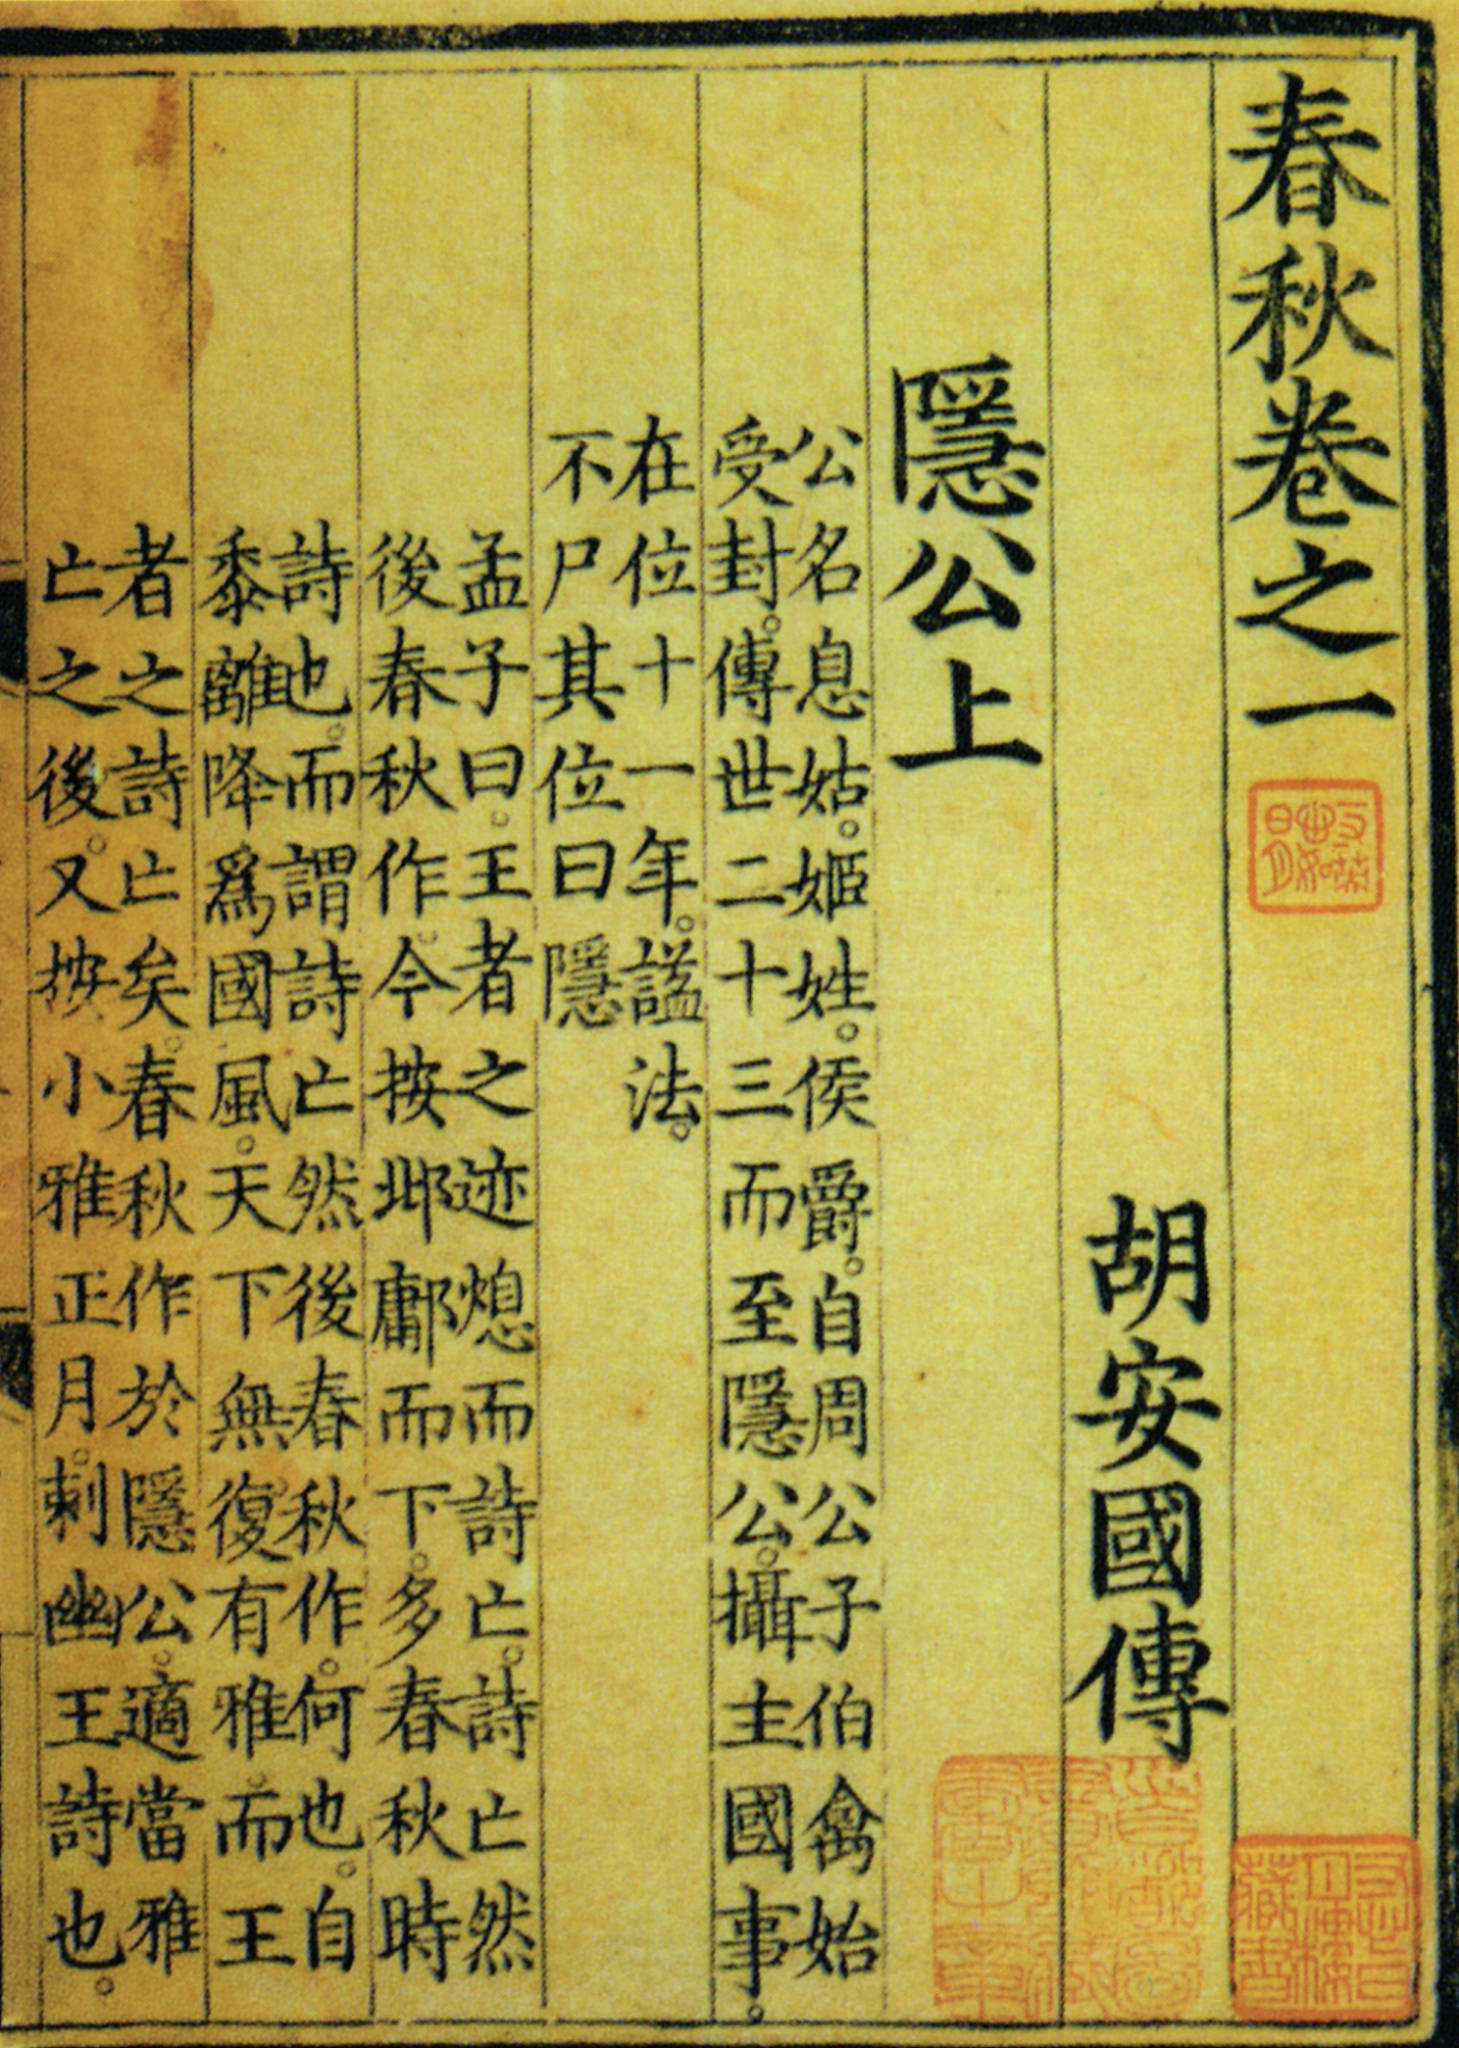 春秋卷之一
胡安國傳
隱公上
公名息姑。姬姓。侯爵。自周公子伯禽始
受封。傳世二十三而至隱公。攝主國事。
在位十一年。諡法。
不尸其位曰隱
孟子曰。王者之迹熄而詩亡。詩亡然
後春秋作。今按邶鄘而下。多春秋時
詩也。而謂詩亡然後春秋作。何也。自
黍離降為國風。天下無復有雅。而王
者之詩亡矣。春秋作於隱公。適當雅
亡之後。又按小雅正月。刺幽王詩也。